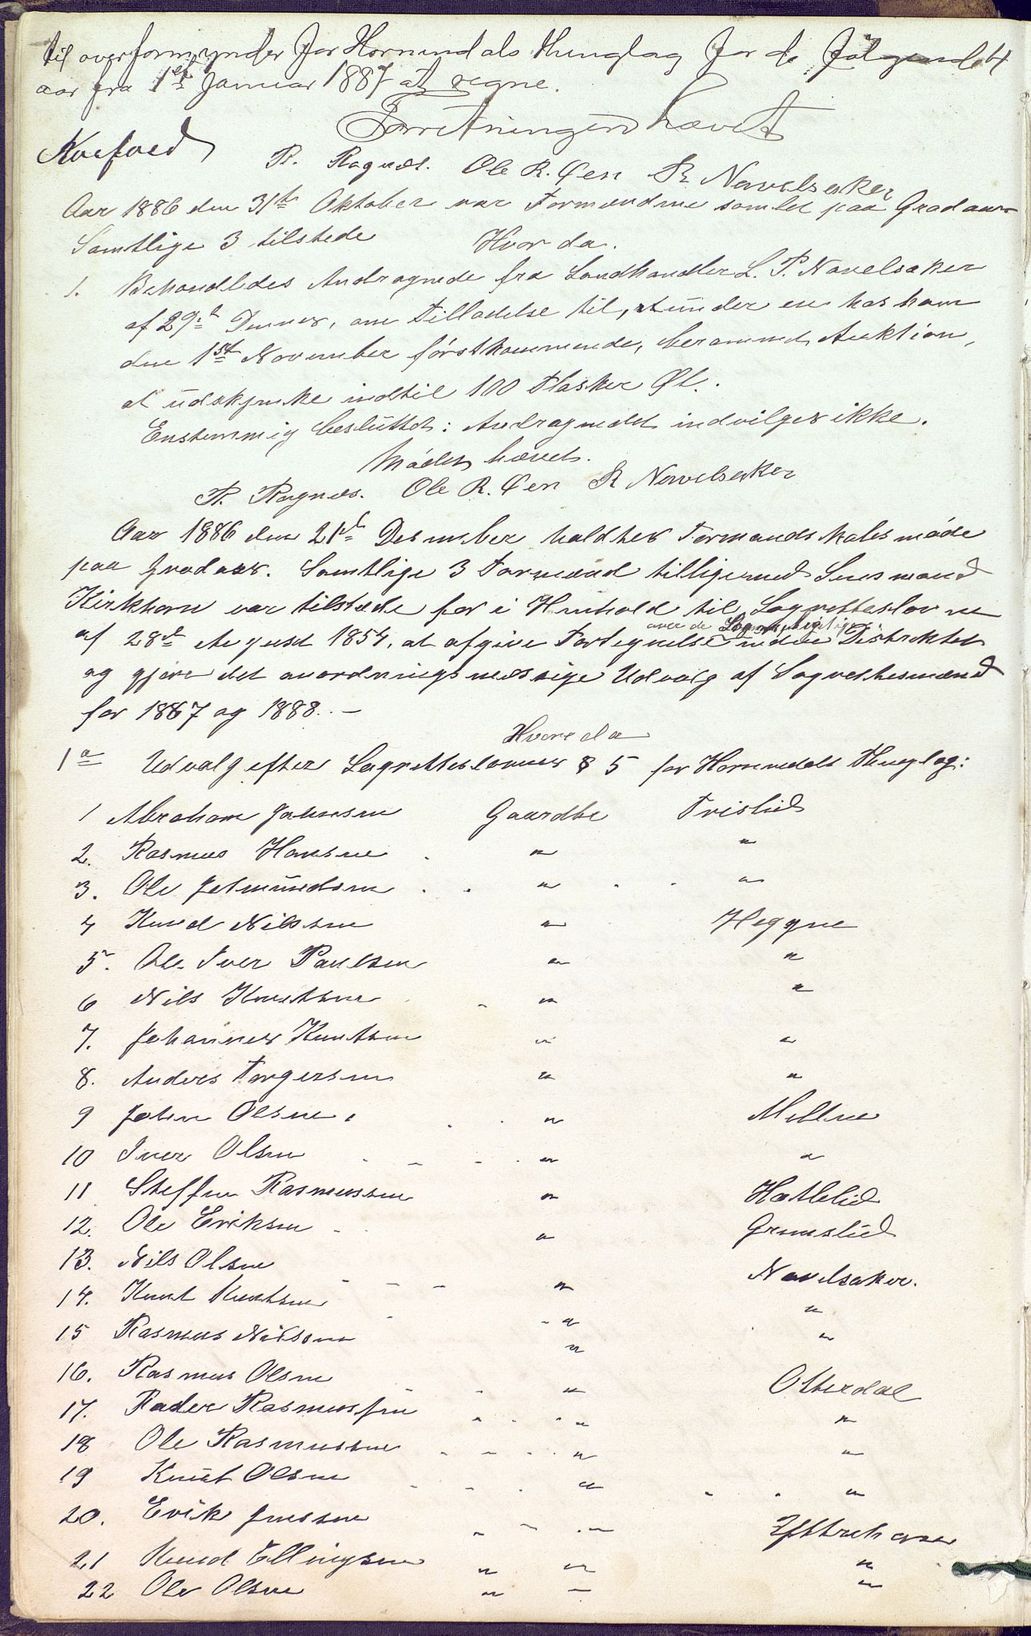 til overformynder for Hornindals thinglag for de følgende 4
aar fra 1ste Januar 1887 at regne.
Forretningen hævet
Koefoed
R. Rognes. Ole R. Øen R Navelsaker
Aar 1886 den 31te Oktober var Formændene samlet paa Grodaas
Samtlige 3 tilstede Hvor da.
1. Behandledes Andragende fra Landhandler L. P. Navelsaker
af 29de Dennes, om Tilladelse til, at under en hos ham
den 1ste November førstkommende, berammed Auktion,
at udskjenke indtil 100 Flasker Øl.
Enstemmig besluttet: Andragendet indvilges ikke.
Mødet hævet.
R. Rognes. Ole R. Øen R Navelsaker
Aar 1886 den 21de Desember holdtes Formandskabsmøde
paa Grodaas. Samtlige 3 Formænd tilligemed Lensmand
Kirkhorn var tilstede for i Henhold til Lagretteslovene
over de Lagrettepligtige
af 28de August 1854, at afgive Fortegnelse inden Distriktet
og gjøre det anordningsmessige Udvalg af Lagrettesmænd
for 1887 og 1888. –
Hvor da
1a Udvalg efter Lagrettesloves § 5 for Hornindals Thinglag:
1 Abraham Johnsen Gaardbr Tvislid
2. Rasmus Hansen . " "
3. Ole Jetmundsen . . " . . "
4 Knud Nilssen " Heggen
5. Ole Iver Paulsen " "
6 Nils Knutsen . " "
7. Johannes Knutsen " "
8. Anders Torgersen " "
9 John Olsen . . . " Melheim
10 Iver Olsen . - - . " "
11 Steffen Rasmussen " Hatlelid
12. Ole Eriksen - " Grimslid
13. Nils Olsen Navelsaker.
14. Knut Knutsen - - - " "
15 Rasmus Nilssen - " "
16. Rasmus Olsen " Otterdal
17. Peder Rasmussen - " "
18 Ole Rasmussen - - - . " "
19 Knut Olsen . . . " . . "
20. Erik Jenssen " - .- Ytrehorn
21 Knud Ellingsen " " "
22 Ole Olsen " - "